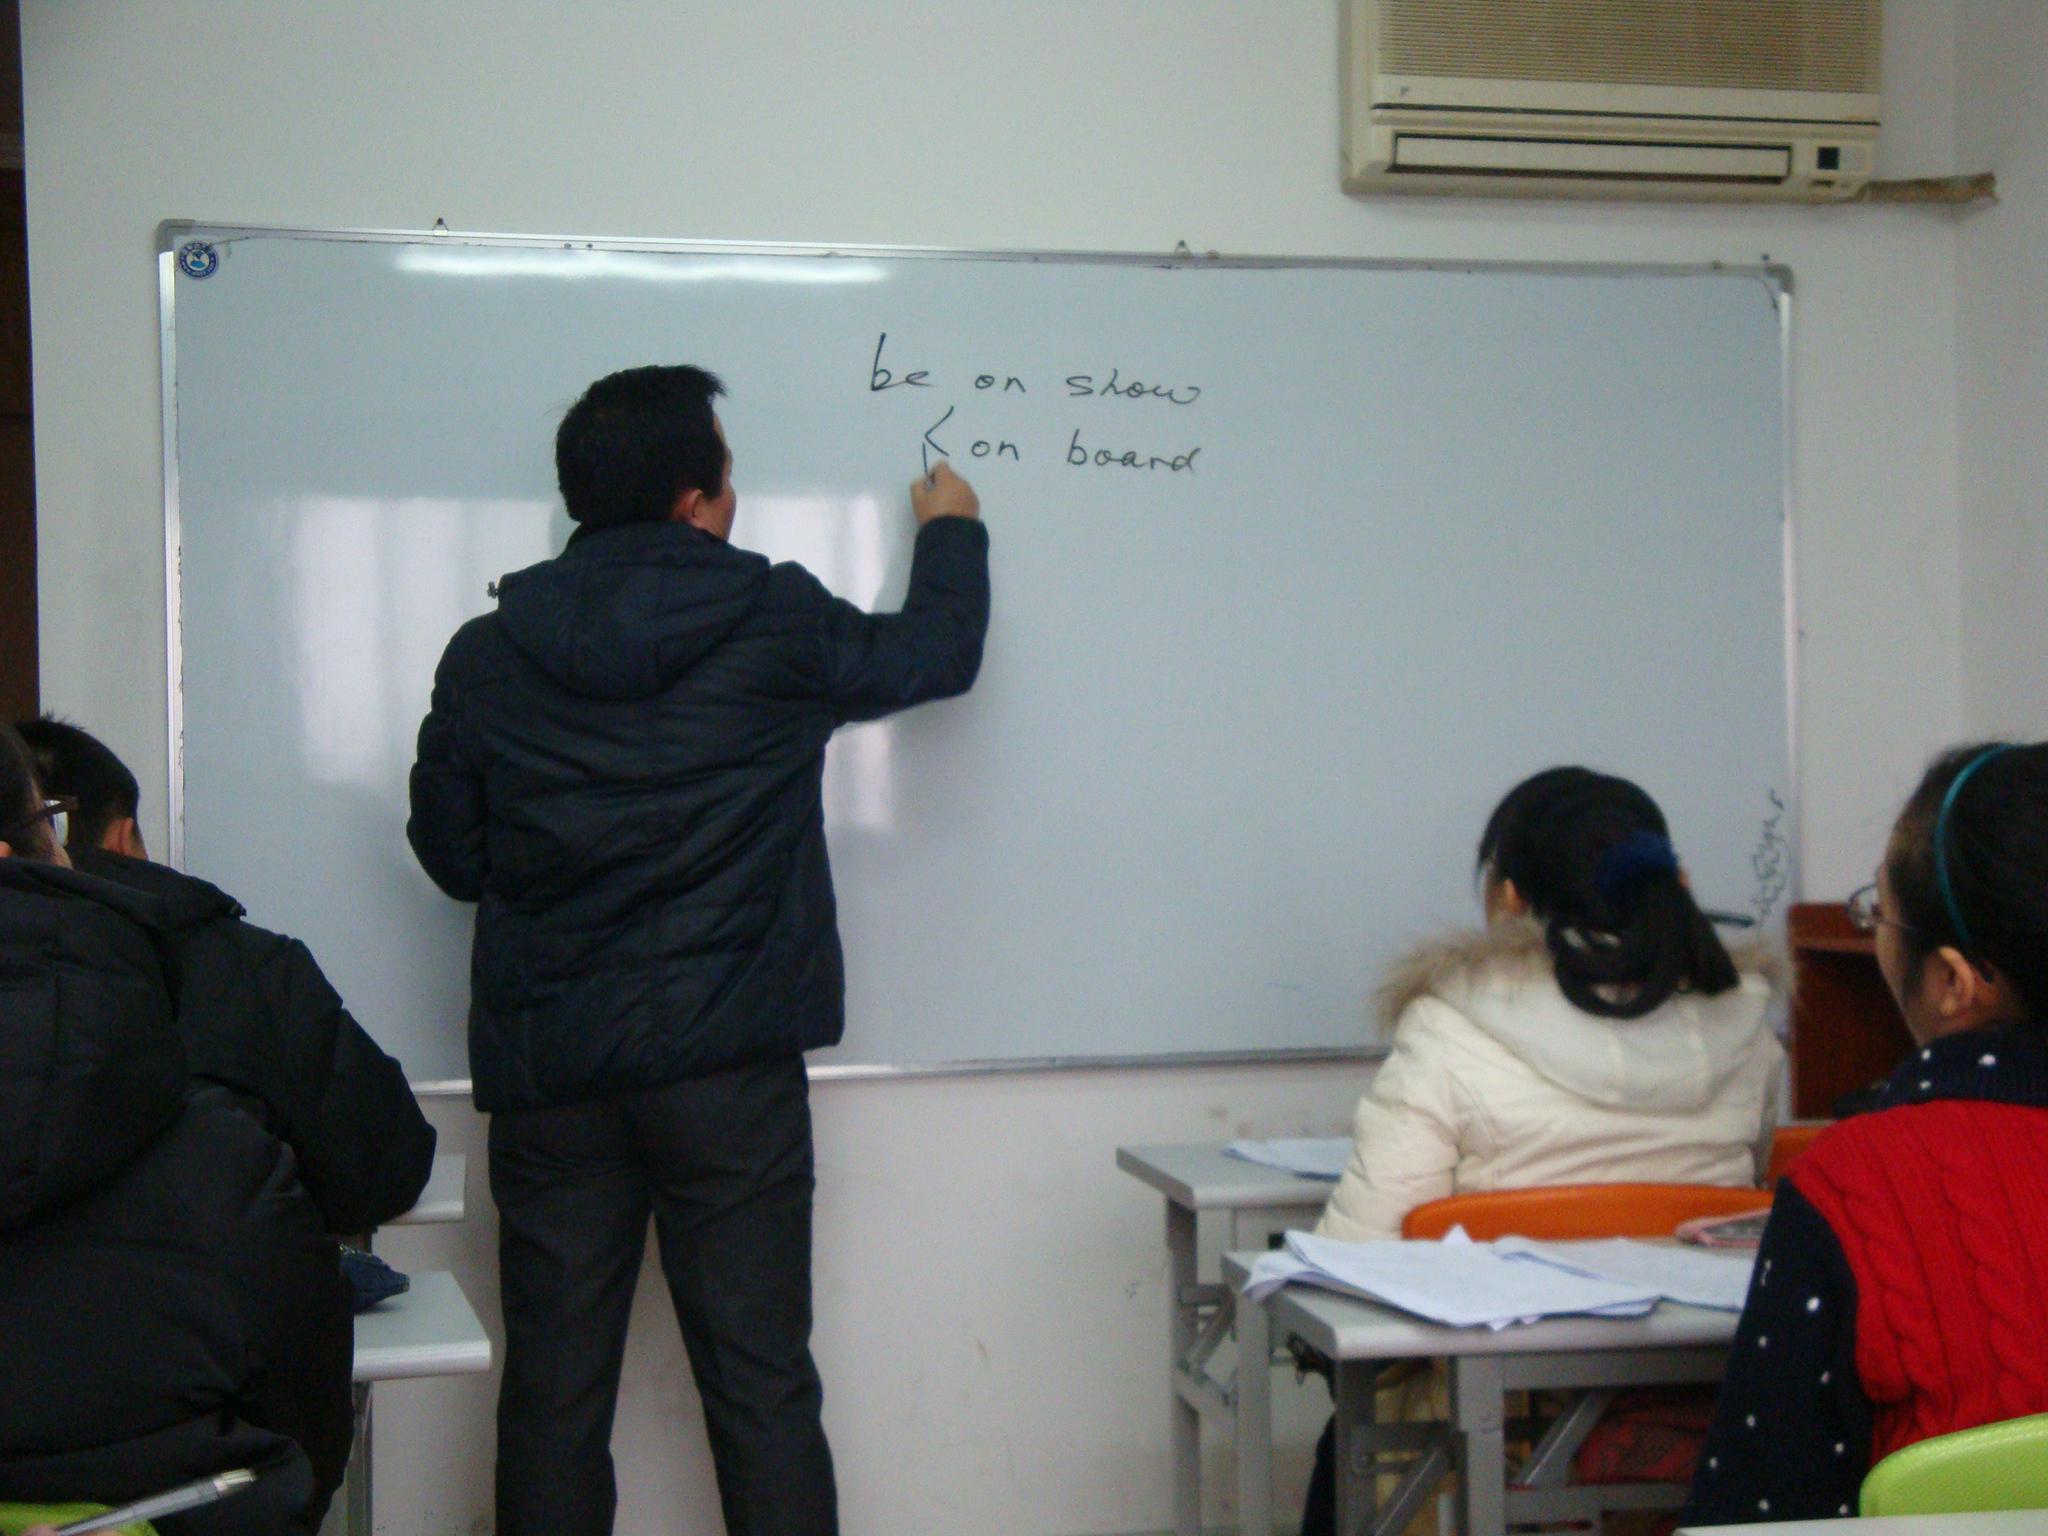 be on show
on board